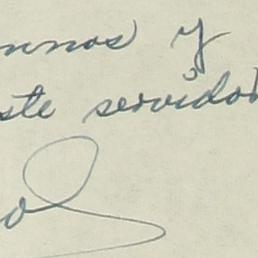 mnos y
ste servidor
o